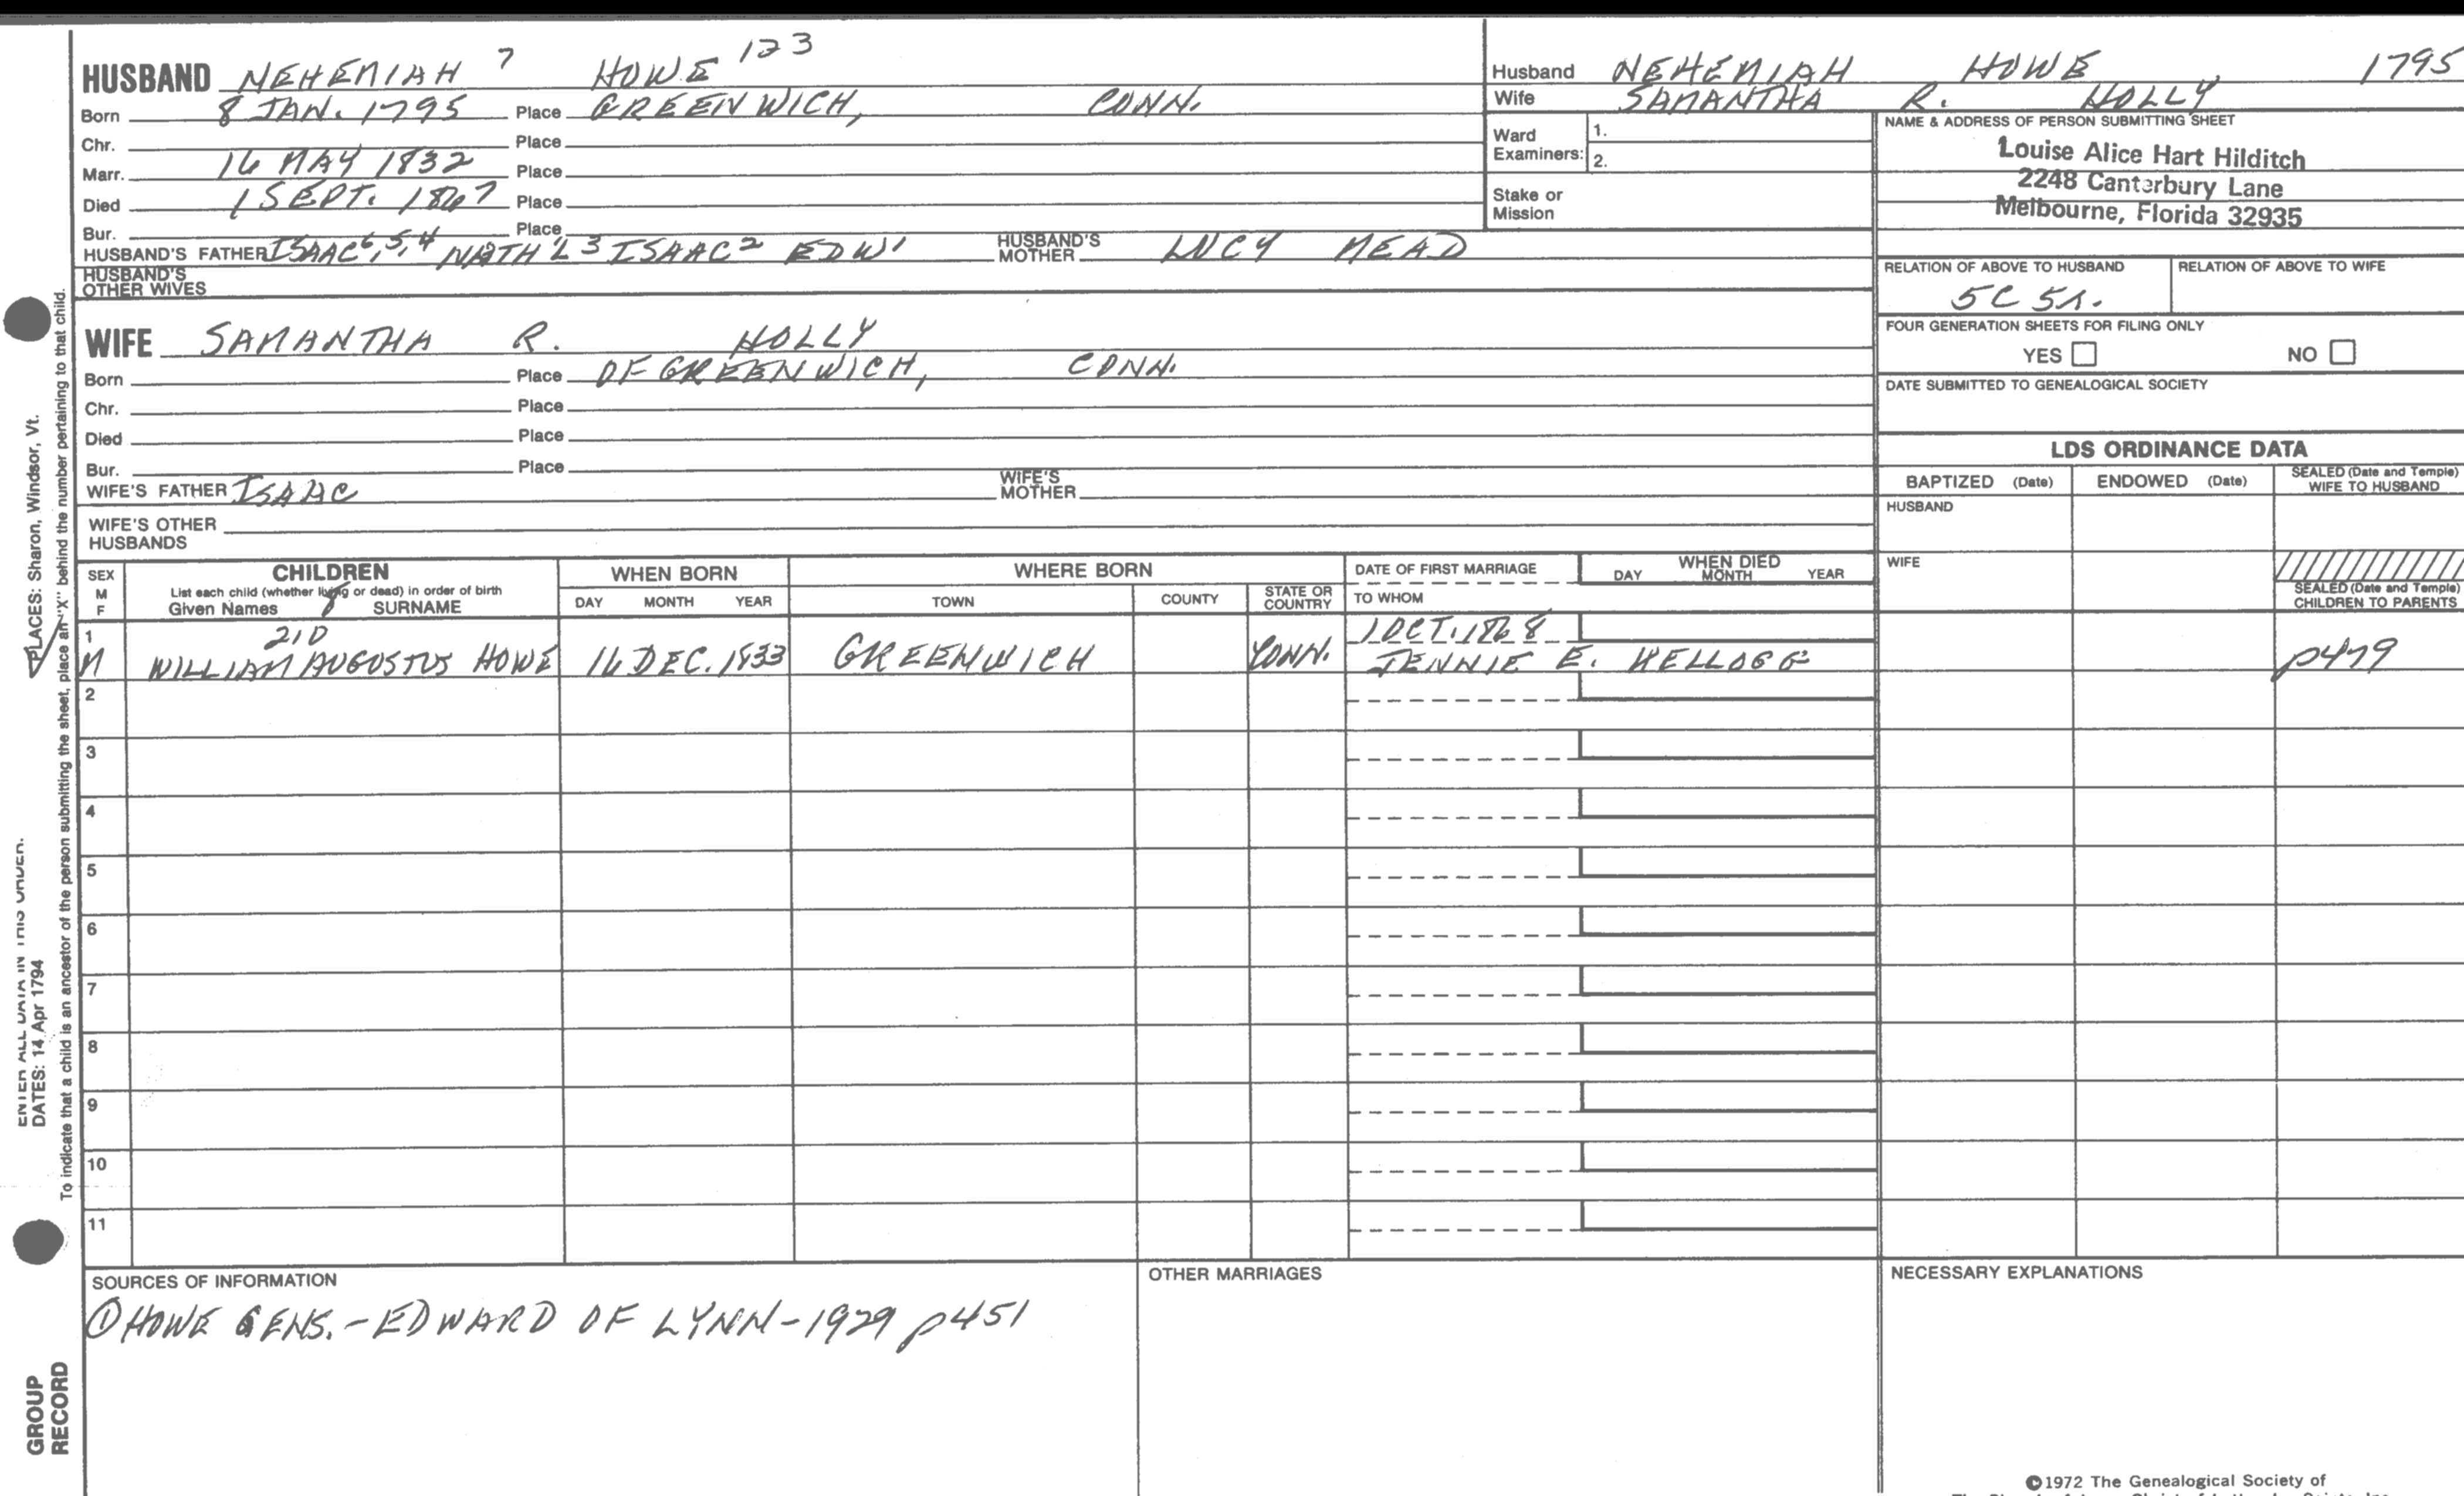 HUSBAND NEHEMIAH 7 HOWE 123
Born 8 JAN. 1795 Place GREENWICH, CONN.
Chr. Place
Marr. 16 MAY 1832 Place
Died 1 SEPT. 1867 Place
Bur. Place
HUSBAND'S FATHER ISAAC 6,5,4 NATH'L 3 ISAAC 2 EDW 1 HUSBAND'S MOTHER LUCY MEAD
HUSBAND'S OTHER WIVES
Husband NEHEMIAH HOWE 1795
Wife SAMANTHA R. HOLLY
Ward Examiners: 1.
2.
Stake or Mission
NAME & ADDRESS OF PERSON SUBMITTING SHEET
Louise Alice Hart Hilditch
2248 Canterbury Lane
Melbourne, Florida 32935
RELATION OF ABOVE TO HUSBAND RELATION OF ABOVE TO WIFE
5C 5r.
FOUR GENERATION SHEETS FOR FILING ONLY
YES NO
DATE SUBMITTED TO GENEALOGICAL SOCIETY
WIFE SAMANTHA R. HOLLY
Born Place OF GREENWICH, CONN.
Chr. Place
Died Place
Bur. Place
WIFE'S FATHER ISAAC WIFE'S MOTHER
WIFE'S OTHER HUSBANDS
LDS ORDINANCE DATA
BAPTIZED (Date) ENDOWED (Date) SEALED (Date and Temple) WIFE TO HUSBAND
HUSBAND
WIFE
SEALED (Date and Temple) CHILDREN TO PARENTS
SEX M F
CHILDREN
List each child (whether living or dead) in order of birth
Given Names 8 SURNAME
WHEN BORN
DAY MONTH YEAR
WHERE BORN
TOWN COUNTY STATE OR COUNTRY
DATE OF FIRST MARRIAGE
TO WHOM
WHEN DIED
DAY MONTH YEAR
1 210 1 OCT. 1868
M WILLIAM AUGUSTUS HOWE 16 DEC. 1833 GREENWICH CONN. JENNIE E. KELLOGG p479
2
3
4
5
6
7
8
9
10
11
SOURCES OF INFORMATION
① HOWE GENS. - EDWARD OF LYNN - 1929 p451
OTHER MARRIAGES
NECESSARY EXPLANATIONS
©1972 The Genealogical Society of
PLACES: Sharon, Windsor, Vt.
ENTER ALL DATA IN THIS ORDER.
DATES: 14 Apr 1794
To indicate that a child is an ancestor of the person submitting the sheet, place an "X" behind the number pertaining to that child.
GROUP
RECORD